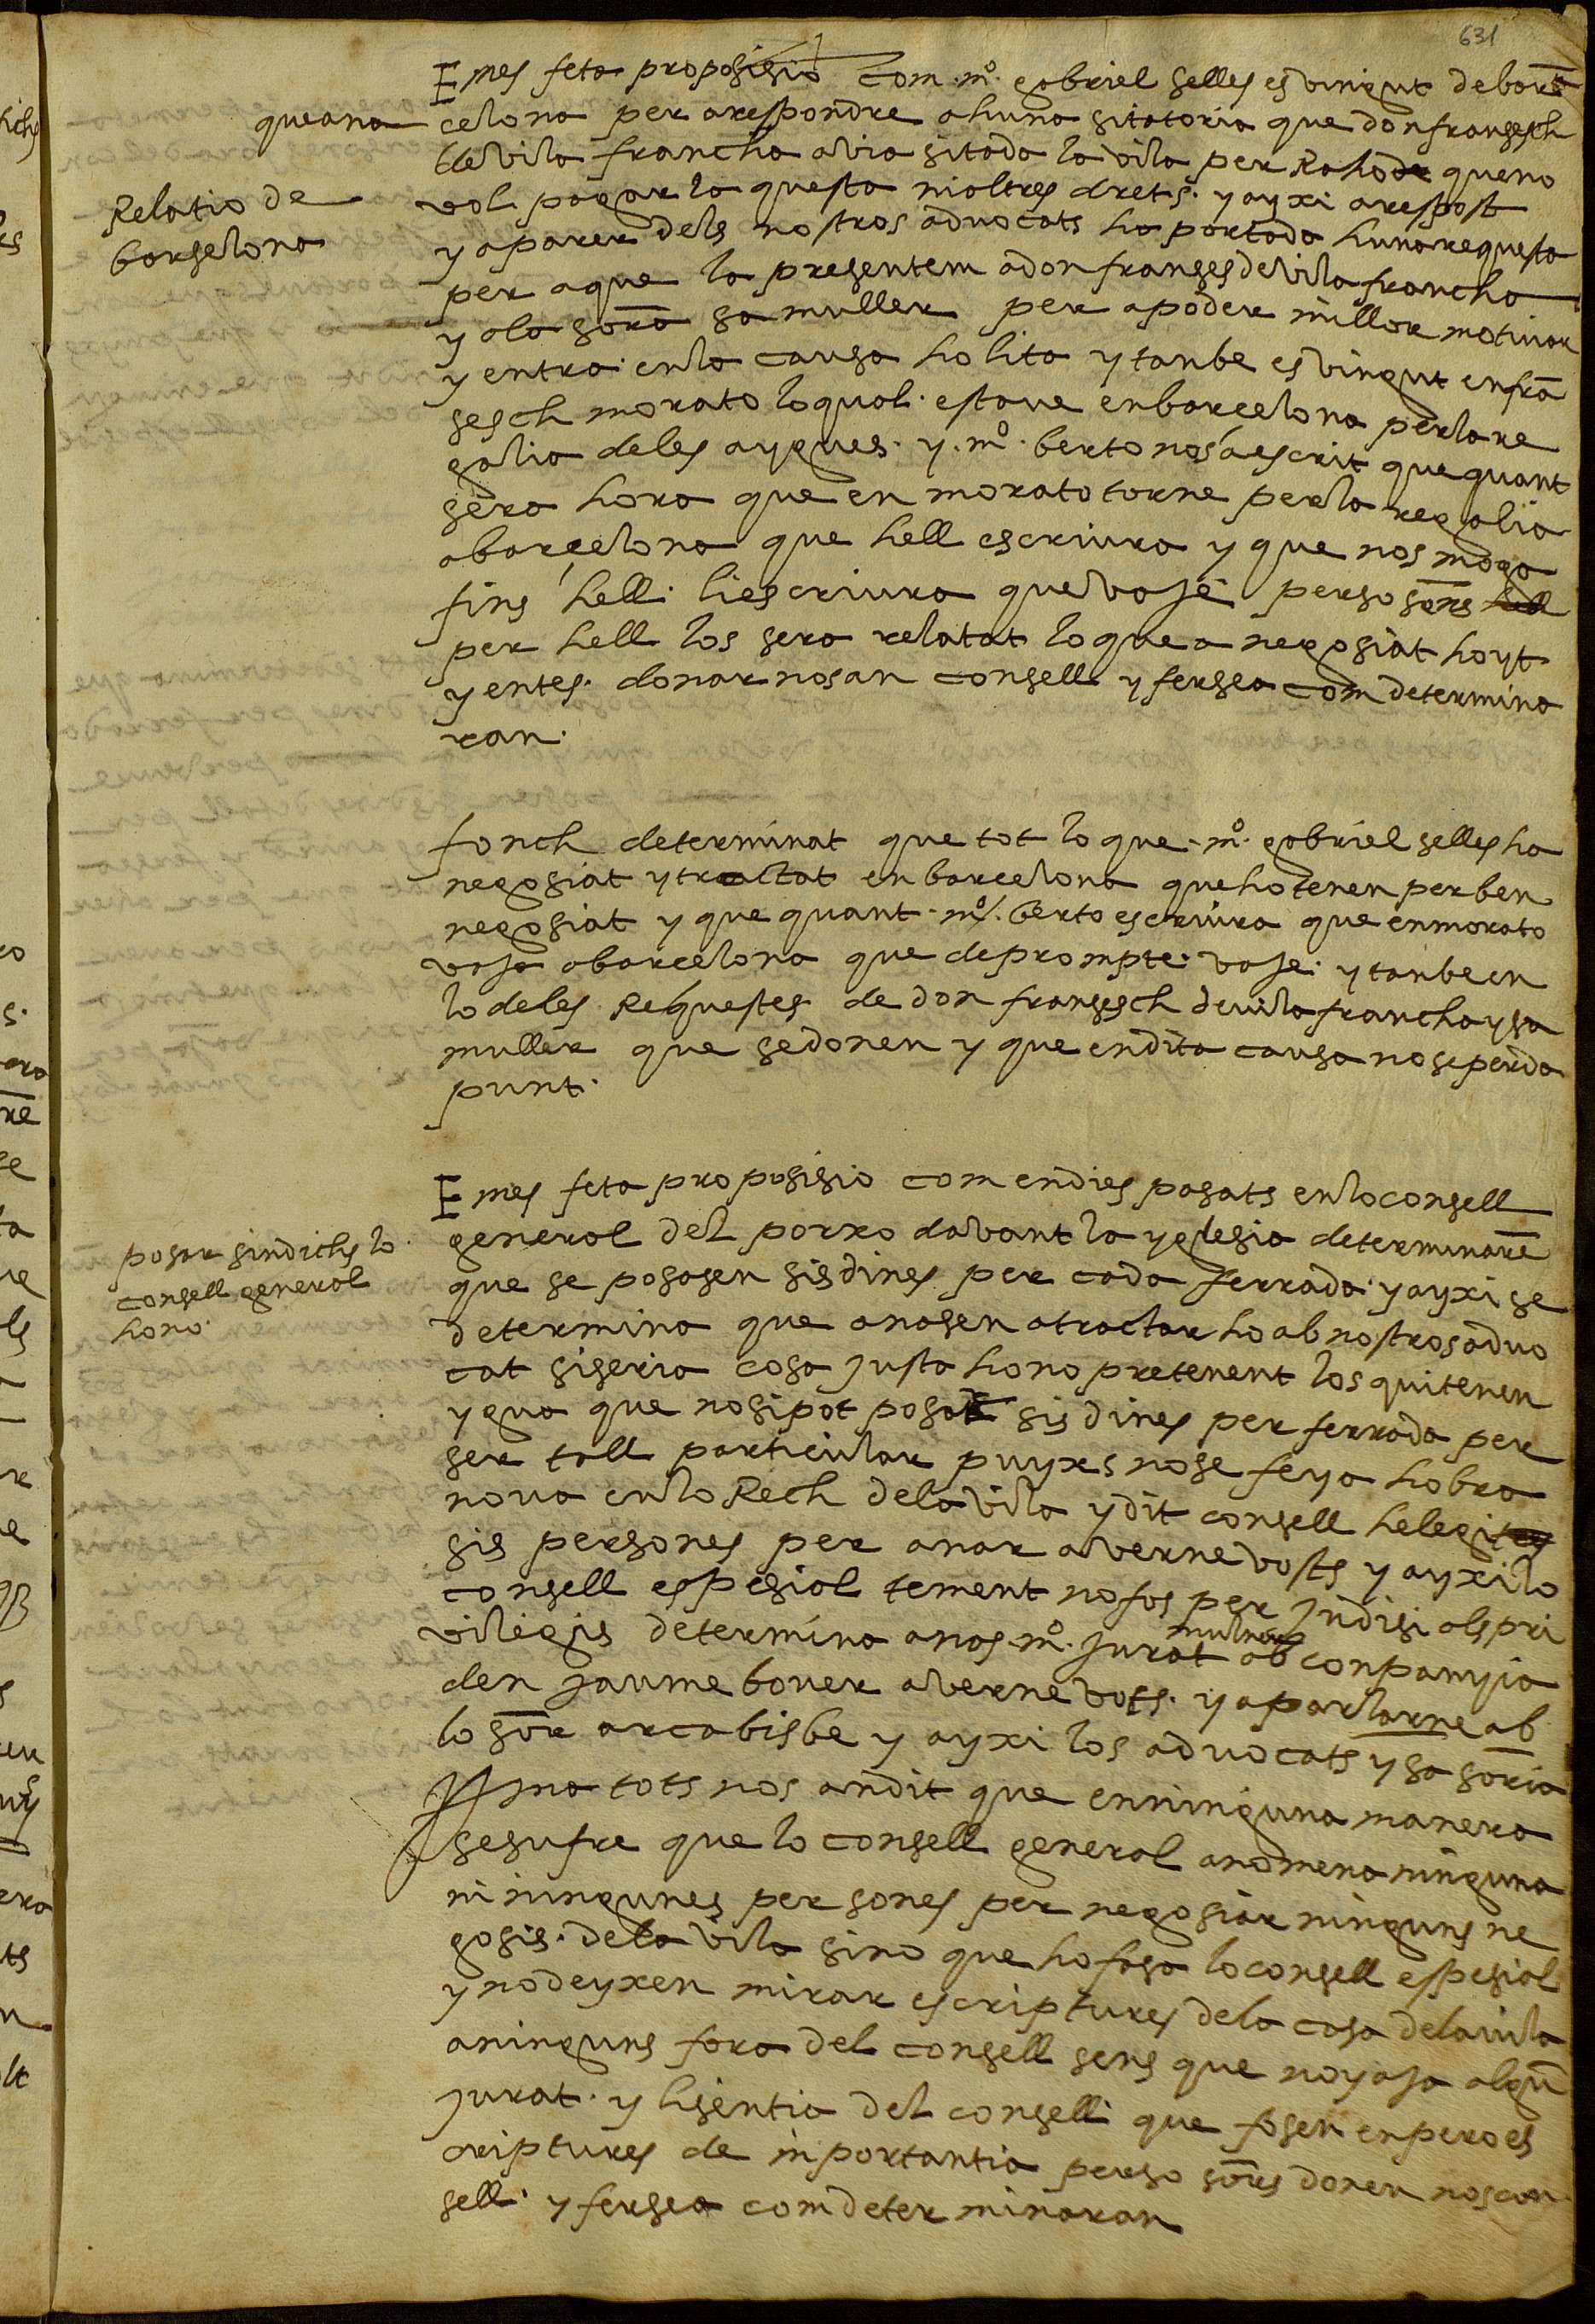 631
E mes feta proposisio com mº gabriel selles es vingut de bar
queana
celona per arespondre ahuna sitatoria que don fransesch
de vila francha avia sitada la vila per Raho de queno
vol pagar la questa nialtres drets. y ayxi arespost
Relatio de
barselona
y aparer dels nostros advocats ha portada huna requesta
per aque la presentem adon franses de vila francha
y ala sora sa muller per apoder millor motivar
y entra enla causa ho lita y tanbe es vingut enfrã
sesch morato loqual estave enbarcelona perla re
galia deles aygues. y. mº. berto nosáescrit que quant
sera hora que en morato torne perla regalia
abarçelona que hell escriura y que nos moga
fins hell liescriura que vaje perso sors
per hell los sera relatat lo que a negosiat hoyt
y entes. donar nosan consell y fersea com determina
ran.
fonch determinat que tot lo que. mº. gabriel selles ha
negosiat y tractat enbarcelona queho tenen per ben
negosiat y que quant. mº. berto escriura que enmorato
vaja abarcelona que deprompte vaje. y tanbe en
lo deles Requestes de don fransesch de vila francha y sa
muller que sedonen y que endita causa noseperda
punt.
E mes feta proposisio com endies pasats enlo consell
general del porxo davant la yglesia determinarẽ
posar sindichs lo
consell general
hono.
que se posasen sis dines per cada ferrada y ayxi se
determina que anasen atractar ho ab nostros advo
cat siseria cosa justa hono pretenent los quitenen
ygua que nosipot posar sis dines per ferrada per
ser tall particular puyxs nose feya hobra
nova enlo Rech dela vila y dit consell helegi
sis persones per anar averne vosts y ayxi lo
consell espesial tement nofos per judisi als pri
vilegis determina anas. mº. jurat mulner ab conpanyia
den jaume bover averne vots. y aparlarne ab
lo sor arcabisbe y ayxi los advocats y sa soria
Ylma tots nos andit que enninguna manera
sesufre que lo consell general anomena ninguna
ni ningunes persones per negosiar ninguns ne
gosis. dela vila sino que hofasa loconsell espesial
y no deyxen mirar escriptures dela casa delavila
aninguns fora del consell sens que noyaja algũ
jurat. y lisentia del consell que fosen enperoes
criptures de inportantia perso sors donen noscon
sell. y fersea com determinaran